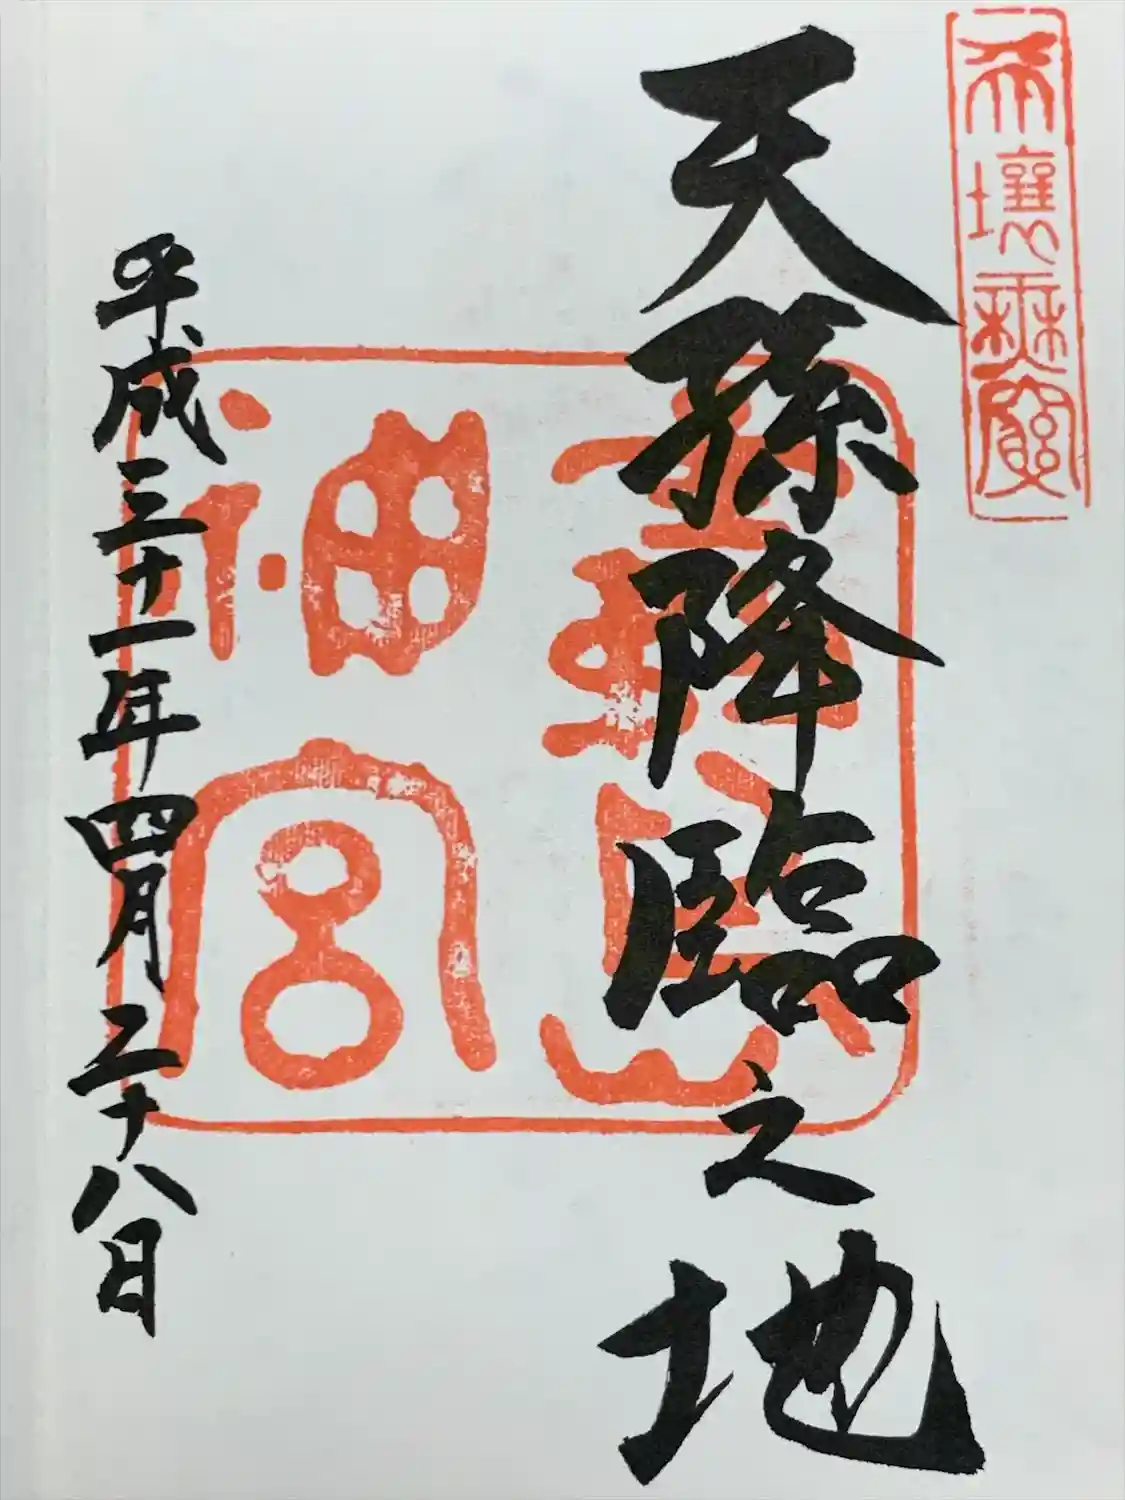 天孫降臨之地
神宮
平成三十一年四月二十八日